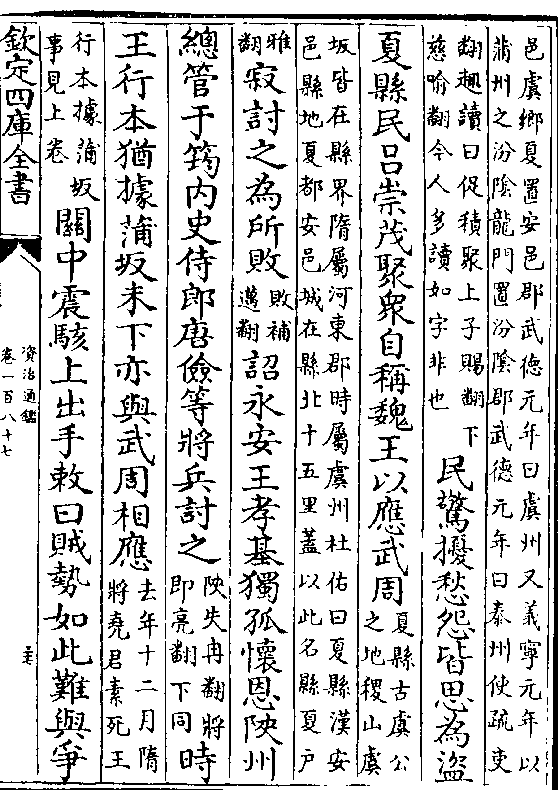 邑虞鄉夏置安邑郡武德元年曰虞州又義寧元年以
蒲州之汾陰龍門置汾陰郡武德元年曰泰州使疏吏
翻趣讀曰促積聚上子賜翻下
慈喻翻今人多讀如字非也
民驚擾愁怨皆思為盜
夏縣民呂崇茂聚衆自稱魏王以應武周
夏縣古虞公
之地稷山虞
坂皆在縣界隋屬河東郡時屬虞州杜佑曰夏縣漢安
邑縣地夏都安邑城在縣北十五里蓋以此名縣夏户
雅
翻
寂討之為所敗
敗補
邁翻
詔永安王孝基獨孤懷恩陜州
總管于筠内史侍郎唐儉等將兵討之
陜失冉翻將
即亮翻下同
時
王行本猶據蒲坂未下亦與武周相應
去年十二月隋
將堯君素死王
行本據蒲坂
事見上卷
關中震駭上出手敕曰賊勢如此難與爭
欽定四庫全書
資治通鑑
卷一百八十七